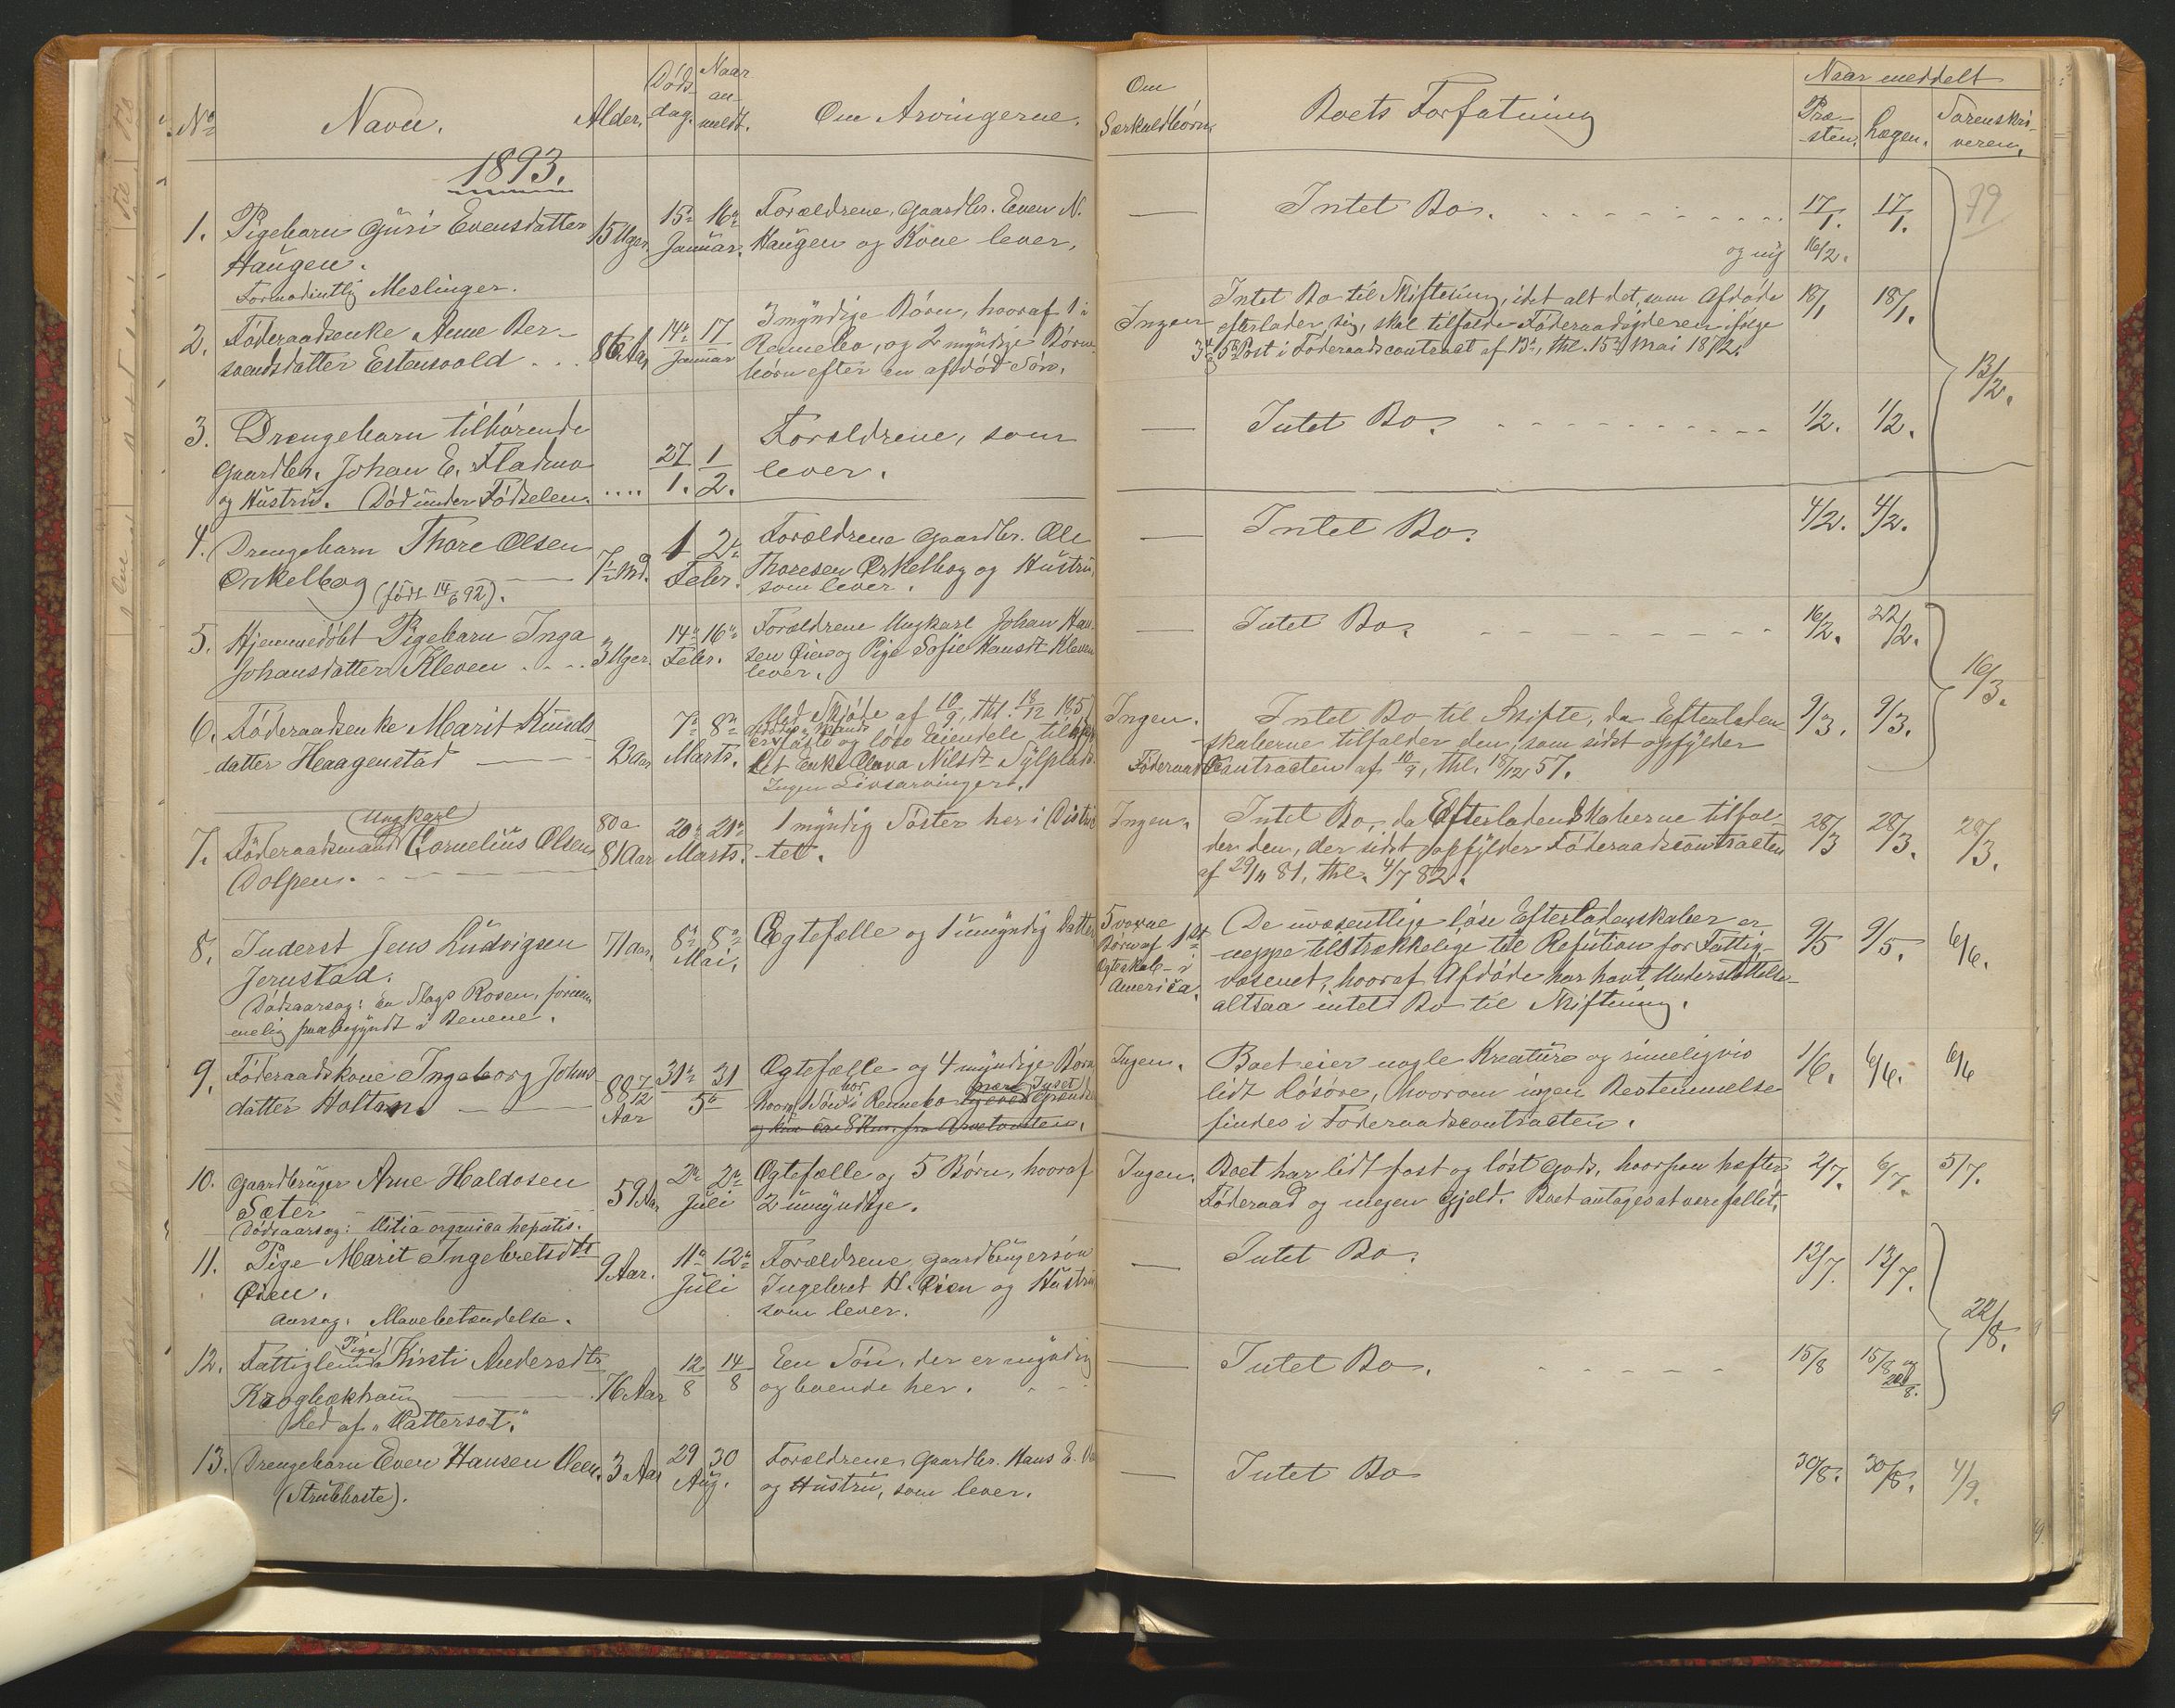 No
Navn.
Alder.
Døds-
dag.
Naar
an-
meldt.
Om Arvingerne.
Om
Særkuldbörn.
Boets Forfatning
Naar meddelt
Præ-
sten.
Lægen.
Sorenskri-
veren.
1893.
1. Pigebarn Guri Evensdatter
Haugen.
Formodentlig Meslinger.
15 Uger.
15de 16de
Januar.
Forældrene, Gaardbr. Even N.
Haugen og Kone lever.
—
Intet Bo.
17/1. 17/1.
og mig 16/2.
79
2. Føderaadsenke Anne Ber-
svendsdatter Estensvold
86 Aar
14de 17
Januar
3 myndige Børn, hvoraf 1 i
Rennebo, og 2 myndige Børne-
børn efter en afdød Søn.
Ingen
Intet Bo til Skiftesing, idet alt det, som Afdøde
efterlader sig, skal tilfalde Føderaadsyderen ifølge
Post i Føderaadscontract af 13de, thl. 15de Mai 1872.
18/1 18/1.
13/2.
3. Drengebarn tilhørende
Gaardbr. Johan E. Fladmo
og Hustru. Død under Fødselen.
....
27 1
1. 2.
Forældrene, som
lever.
—
Intet Bo.
1/2. 1/2.
4. Drengebarn Thore Olsen
Orkelbog (født 14/6 92).
7½ Md.
1 2de
Febr.
Forældrene Gaardbr. Ole
Thoresen Orkelbog og Hustru,
som lever.
—
Intet Bo.
4/2. 4/2.
5. Hjemmedøbt Pigebarn Inga
Johansdatter Kleven
3 Uger.
14de 16de
Febr.
Forældrene Ungkarl Johan Han-
sen Øien og Pige Sofie Hansdt Kleven
lever.
—
Intet Bo.
16/2. 22/2.
16/3.
6. Føderaadsenke Marit Knuds-
datter Heaagenstad
Aar
7de 8de
Marts.
Med Skjøde af 10/9, thl. 18/12 1857
er faste og løse Eiendele
Enke Nilsdt
Ingen Livsarvinger.
Ingen.
Intet Bo til Skifte, da Efterladen-
skaberne tilfalder den, som sidst opfylder
Føderaadscontracten af 10/9, thl. 18/12 57.
9/3. 9/3.
7. Føderaadsmand Ungkarl Cornelius Olsen
Dolpen.
80 a
81 Aar
20de 21de
Marts.
1 myndig Søster her i Distric-
tet.
Ingen.
Intet Bo, da Efterladenskaberne tilfal-
der den, der sidst opfylder Føderaadscontracten
af 29/11 81, thl. 4/7 82.
28/3 28/3. 28/3.
8. Inderst Jens Ludvigsen
Jerustad.
Dødsaarsag: En Slags Rosen, fornem-
melig paabegyndt i Benene.
71 Aar.
8de 8de
Mai.
Ægtefælle og 1 umyndig Datter
5 voxne
Børn af 1st
Ægteskab i
America.
De uvæsentlige løse Efterladenskaber er
neppe tilstrækkelige til Refution for Fattig-
væsenet, hvoraf Afdøde har havt Understøttelse
altsaa intet Bo til Skiftning.
9/5 9/5. 6/6.
9. Føderaadskone Ingeborg Johns-
datter Holtan.
88 7/12
Aar
31te 31
5te
Ægtefælle og 4 myndige Børn,
hvoraf Søn bor i Rennebo
Ingen.
Boet eier nogle Kreature og rimeligvis
lidt Løsøre, hvorom ingen Bestemmelse
findes i Føderaadscontracten.
1/6. 6/6. 6/6
10. Gaardbruger Arne Haldosen
Sæter
Dødsaarsag: Vitia organica hepatis.
59 Aar
2de 2de
Juli
Ægtefælle og 5 Børn, hvoraf
2 umyndige.
Ingen.
Boet har lidt fast og løst Gods, hvorpaa hæfter
Føderaad og megen Gjeld. Boet antages at være fallit.
2/7. 6/7. 5/7.
11. Pige Marit Ingebretsdtr
Øien.
Aarsag: Mavebetændelse.
9 Aar.
11te 12te
Juli
Forældrene, Gaardbrugersøn
Ingebret H. Øien og Hustru
som lever.
—
Intet Bo.
13/7. 13/7.
22/8.
12. Fattiglem Pige Kirsti Andersdtr
Krogbækhaug
Led af "Vattersot."
76 Aar
12 14
8 8
Een Søn, der er myndig
og boende her.
—
Intet Bo.
15/8 15/8 og
13. Drengebarn Even Hansen Veen.
(Strubhoste).
3 Aar
29 30
Aug.
Forældrene, Gaardbr. Hans E.
og Hustru, som lever.
—
Intet Bo
30/8. 30/8. 4/9.